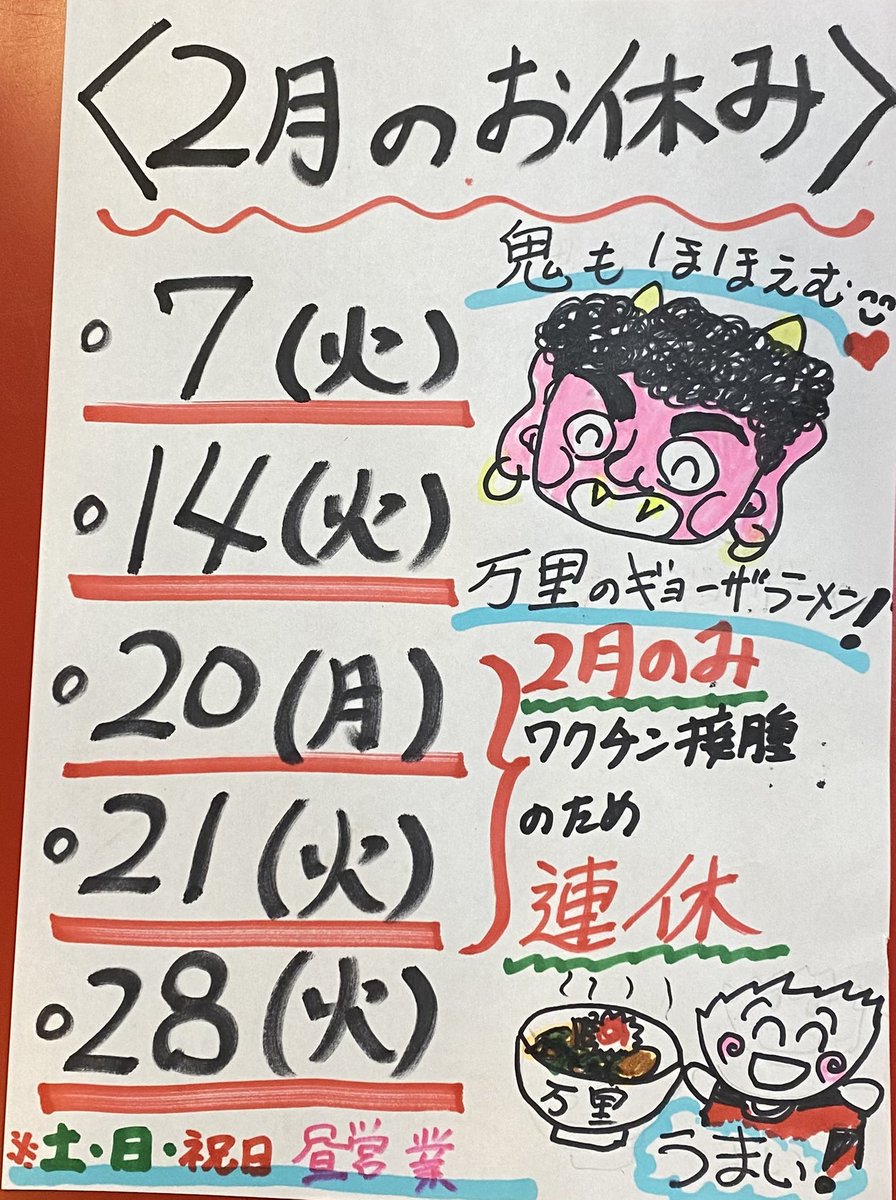 〈2月のお休み〉
鬼もほほえむ
。7(火)
。14(火)
万里のギョーザ、ラーメン!
。20(月)
。21(火)
2月のみ
ワクチン接腫
のため
連休
。28(火)
万里
うまい!
※土・日・祝日 昼営業